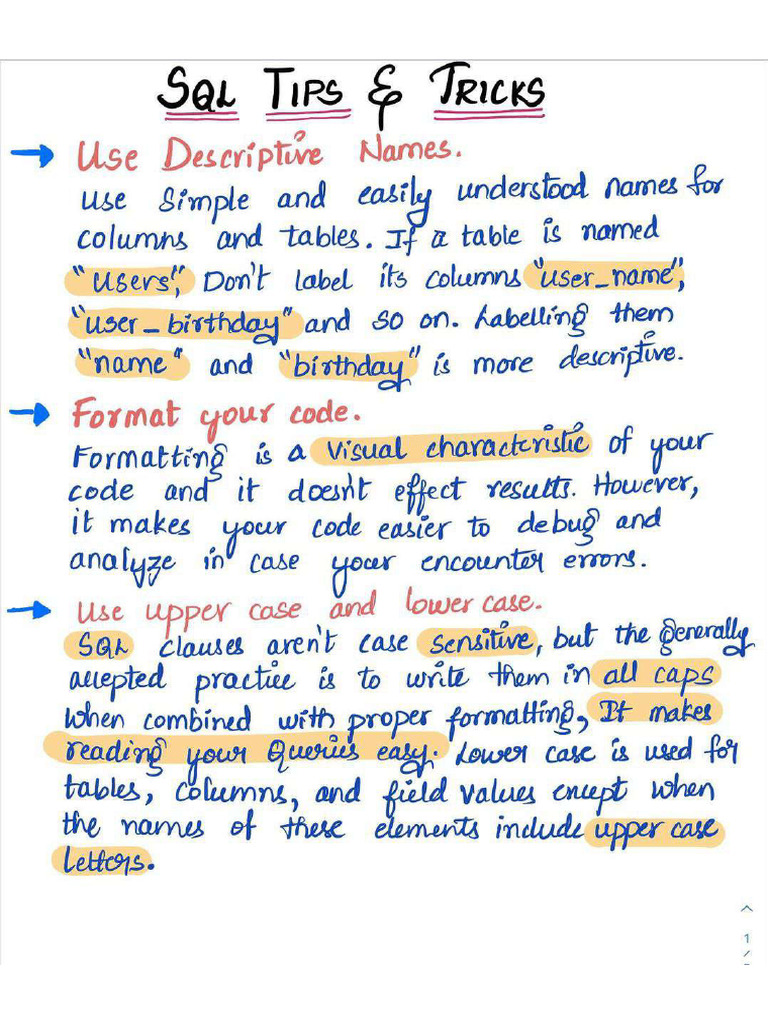 SQL TIPS & TRICKS
→ Use Descriptive Names.
Use Simple and easily understood names for
columns and tables. If a table is named
"Users", Don't label its columns "user_name",
"user_birthday" and so on. Labelling them
"name" and "birthday" is more descriptive.
→ Format your code.
Formatting is a visual characteristic of your
code and it doesn't effect results. However,
it makes your code easier to debug and
analyze in case your encounter errors.
→ Use upper case and lower case.
SQL clauses aren't case sensitive, but the generally
accepted practice is to write them in all caps
when combined with proper formatting, It makes
reading your Queries easy. Lower case is used for
tables, columns, and field values except when
the names of these elements include upper case
letters.
1
/